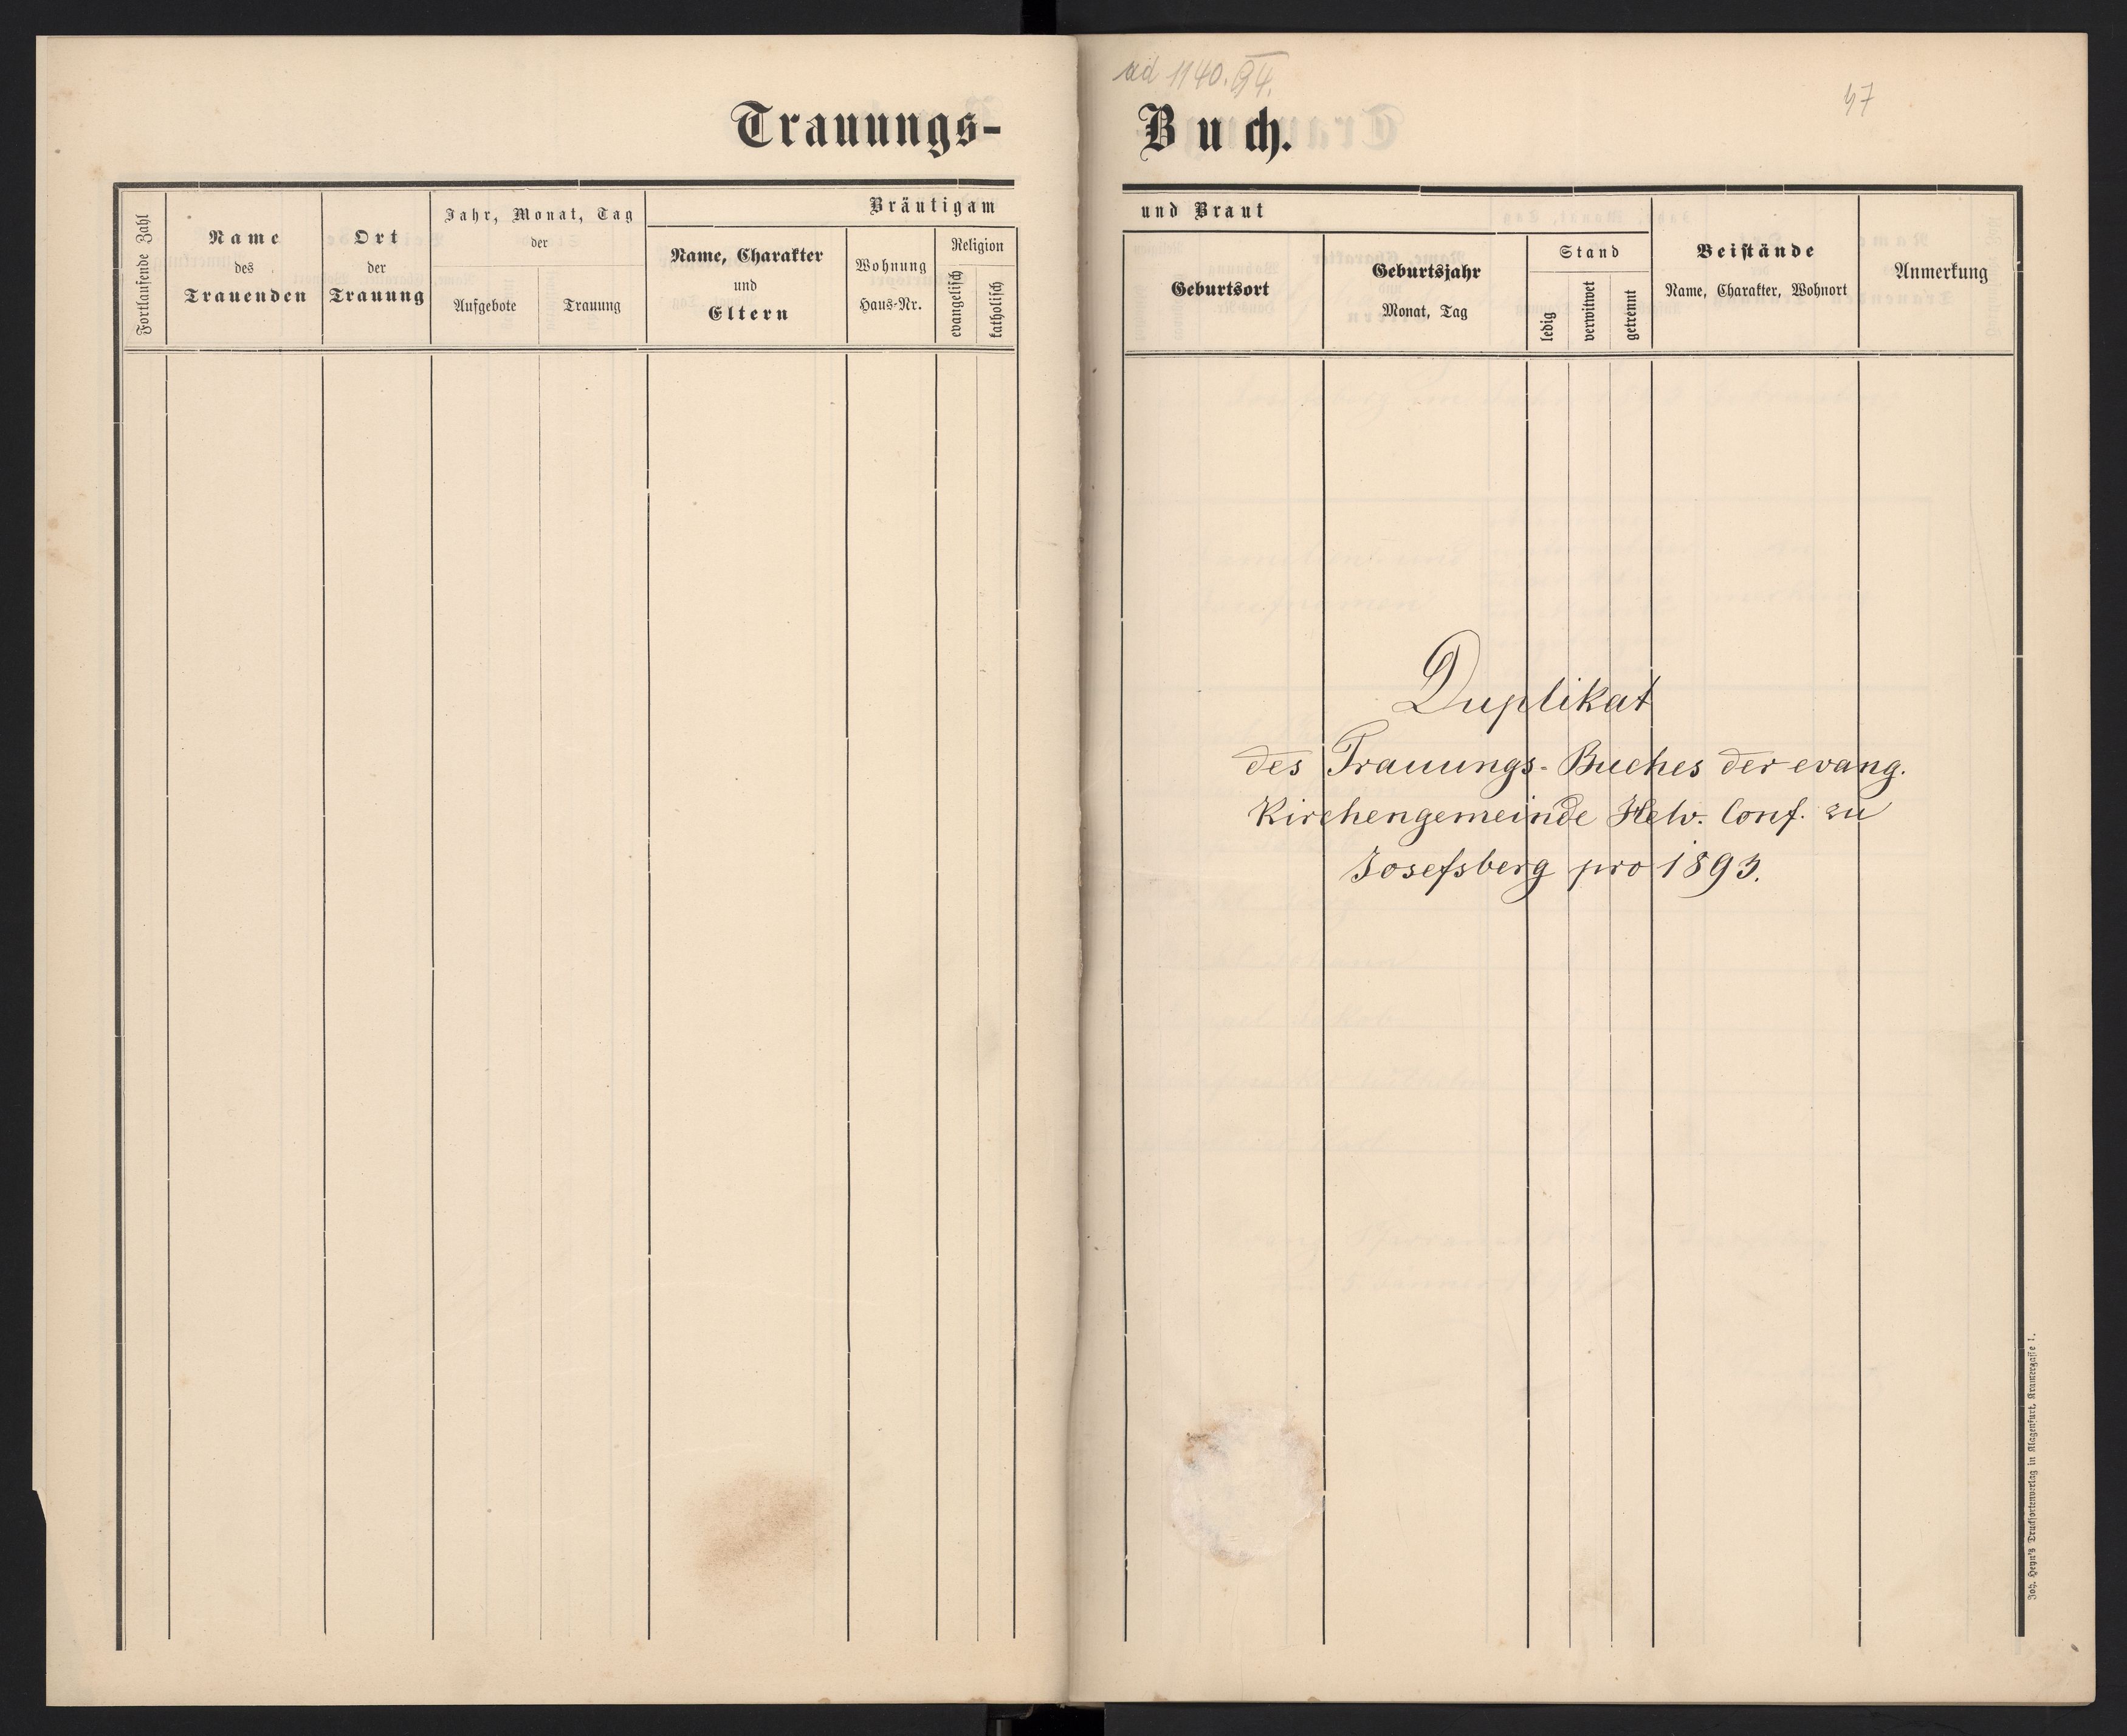 ad 1140.94.
47
Trauungs-
Buch.
Fortlaufende Zahl
Name
des
Trauenden
Ort
der
Trauung
Jahr, Monat, Tag
der
Aufgebote
Trauung
Bräutigam
Name, Charakter
und
Eltern
Wohnung
Haus-Nr.
Religion
evangelisch
katholisch
und Braut
Geburtsort
Geburtsjahr
Monat, Tag
Stand
ledig
verwitwet
getrennt
Beistände
Name, Charakter, Wohnort
Anmerkung
Duplikat
des Trauungs-Buches der evang.
Kirchengemeinde Helv. Conf. zu
Josefsberg pro 1893.
Joh. Heyn's Drucksortenverlag in Klagenfurt, Kramergasse 1.